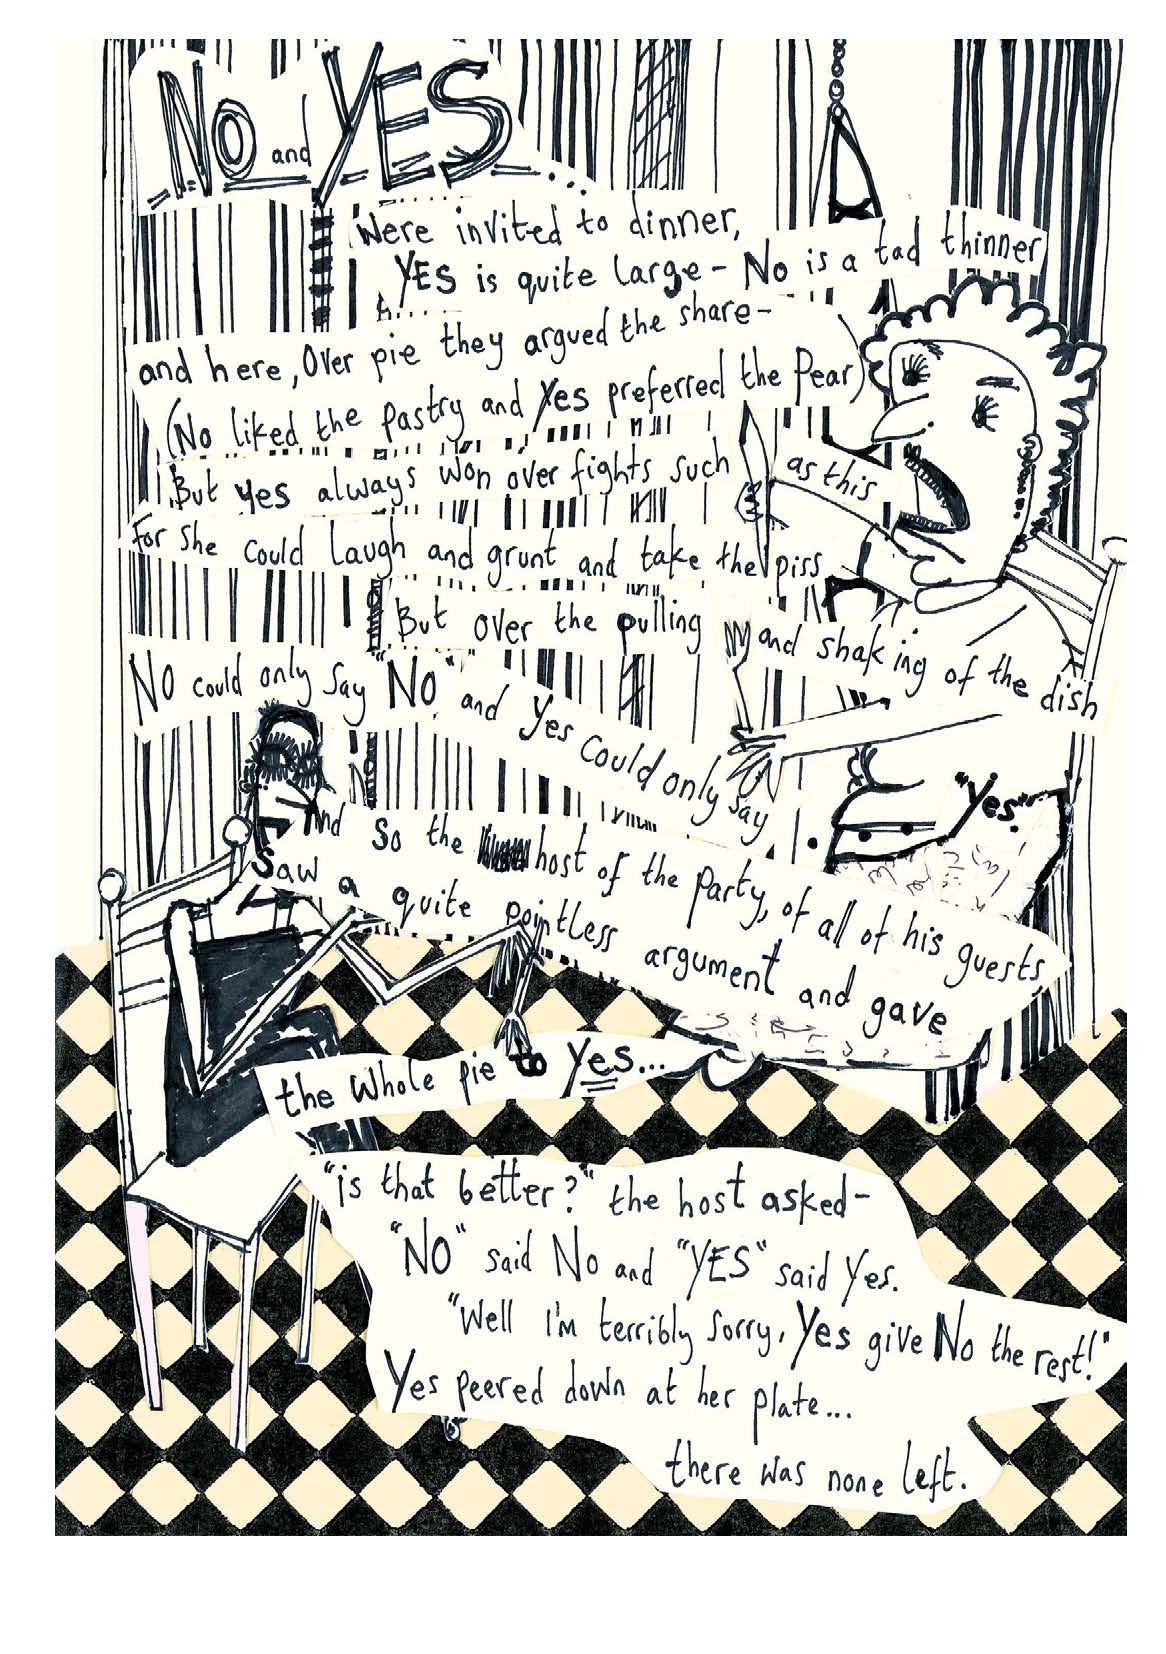 No and YES...
Were invited to dinner,
YES is quite large - No is a tad thinner
and here, Over pie they argued the share -
(No liked the pastry and Yes preferred the Pear)
But yes always won over fights such as this
for she could Laugh and grunt and take the piss
But over the pulling and shaking of the dish
NO could only say "NO" and yes could only say "yes".
And so the host of the party, of all of his guests,
Saw a quite pointless argument and gave
the whole pie to Yes...
"is that better?" the host asked -
"NO" said No and "YES" said Yes.
"Well I'm terribly sorry, Yes give No the rest!"
Yes peered down at her plate...
there was none left.